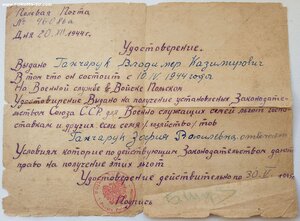 Полевая Почта
№ 96086а
Дня 20.III.1944г.
Удостоверение.
Выдано Ганчарук Владимер Казимирович
В том что он состоит с 10.IV.1944 года
На Военной службе в Войске Польском
Удостоверение Выдано на получение установленых Законодатель-
ством Союза ССР для Военно служащих семей льгот
и других (или семья) (нужное) тов
Ганчарук Зофия Васильевна отвечает
Условиям которие по действующим Законодательствам дают
право на получение этих льгот
Удостоверение действительно по 30.VI.1945
Подпись